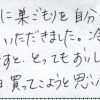 に巣ごもりを自分
いただきました。冷
すと、とってもおいし
日買ってこようと思い